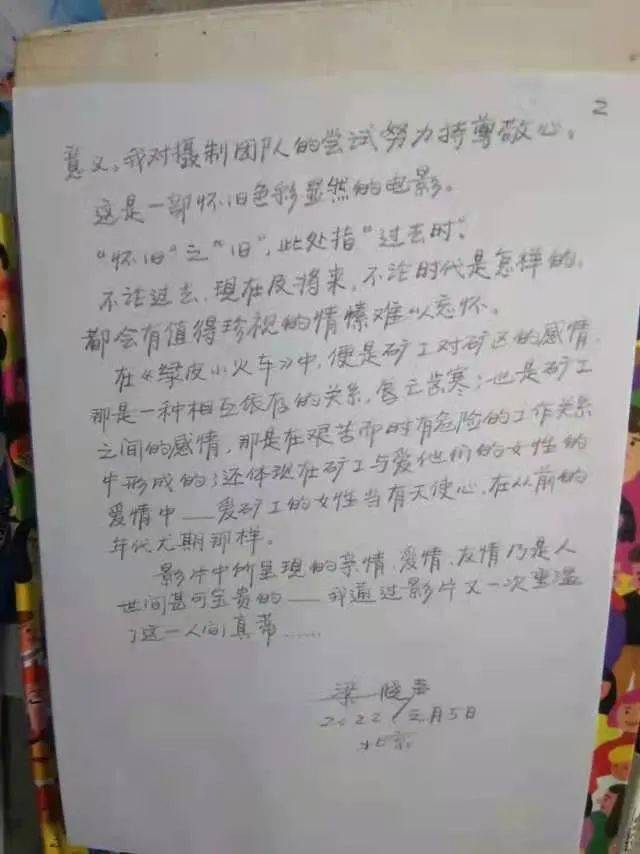 2
意义。我对摄制团队的尝试努力持尊敬心。
这是一部怀旧色彩显然的电影。
"怀旧"之"旧",此处指"过去时"。
不论过去、现在及将来,不论时代是怎样的,
都会有值得珍视的情愫难以忘怀。
在《绿皮小火车》中,便是矿工对矿区的感情,
那是一种相互依存的关系,无言苦寒;也是矿工
之间的感情,那是在艰苦而时有危险的工作关系
中形成的;还体现在矿工与爱他们的女性的
爱情中——爱矿工的女性当有天使心,在从前的
年代尤其那样。
影片中所呈现的亲情、爱情、友情乃是人
世间甚可宝贵的——我通过影片又一次重温
了这一人间真蒂……
梁晓声
2022 月5日
北京